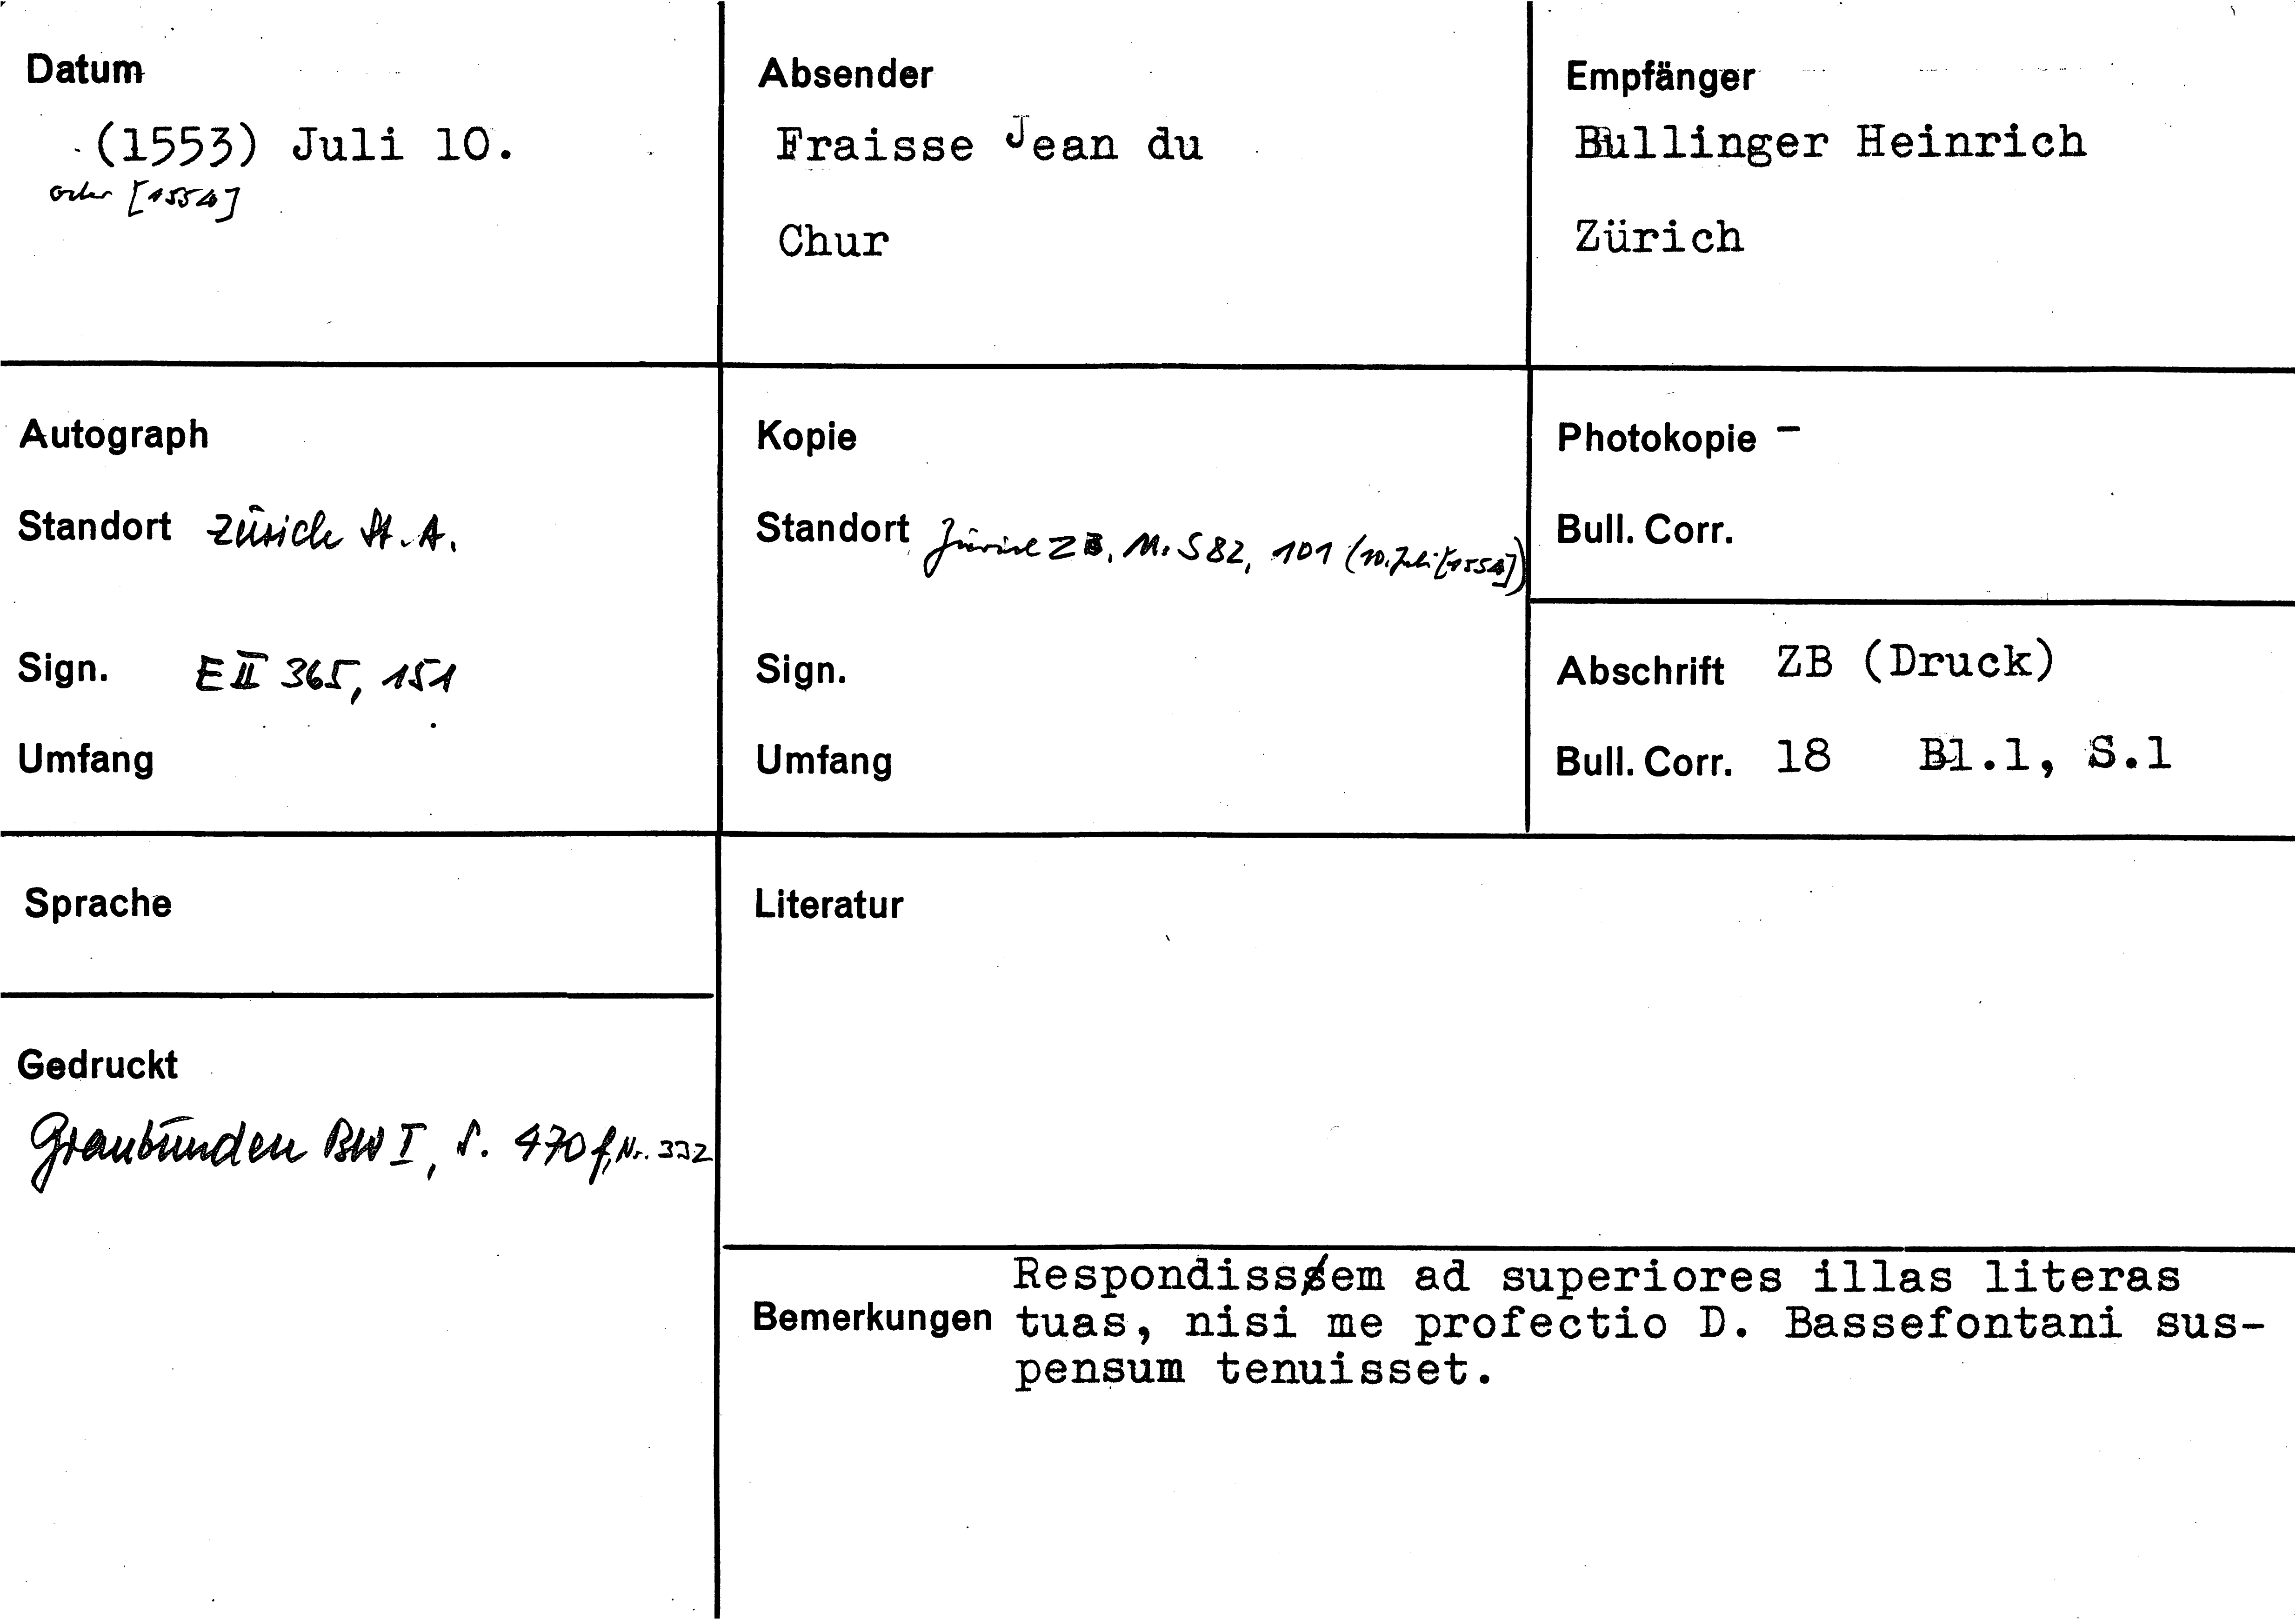 Datum
(1553) Juli 10.
oder [1554]
Absender
Fraisse Jean du
Chur
Empfänger
Bullinger Heinrich
Zürich
Autograph
Standort Zürich St. A.
Sign. E II 365, 151
Umfang
Kopie
Standort Zürich ZB, Ms S 82, 101 (10. Juli [1554])
Sign.
Umfang
Photokopie –
Bull. Corr.
Abschrift ZB (Druck)
Bull. Corr. 18 Bl.1, S.1
Sprache
Gedruckt
Graubünden BW I, S. 470 f, Nr. 332
Literatur
Bemerkungen
Respondissem ad superiores illas literas
tuas, nisi me profectio D. Bassefontani sus-
pensum tenuisset.